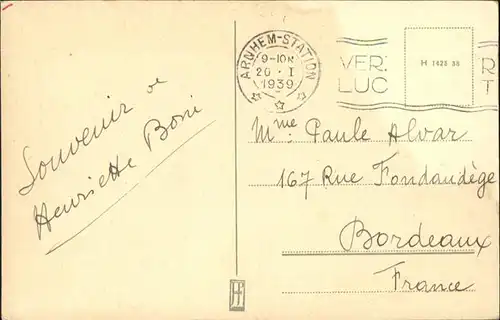 Souvenir de
Henriette Boni
ARNHEM-STATION
9-10N
20 · I
1939
VER
LUC
H 1428 38
R
T
Mme Paule Alvar
167 Rue Fondaudège
Bordeaux
France